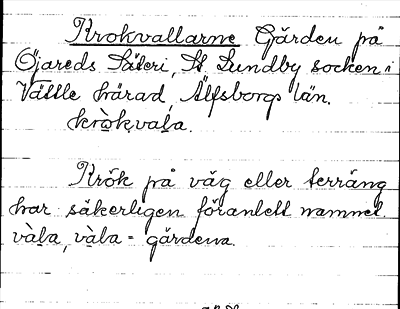 Krokvallarne Gärden på
Öjareds Säteri, St Lundby socken i
Vättle härad, Älfsborgs län.
kròkvala.
Krök på väg eller terräng
har säkerligen föranlett namnet.
vàla, vàla = gärdena.